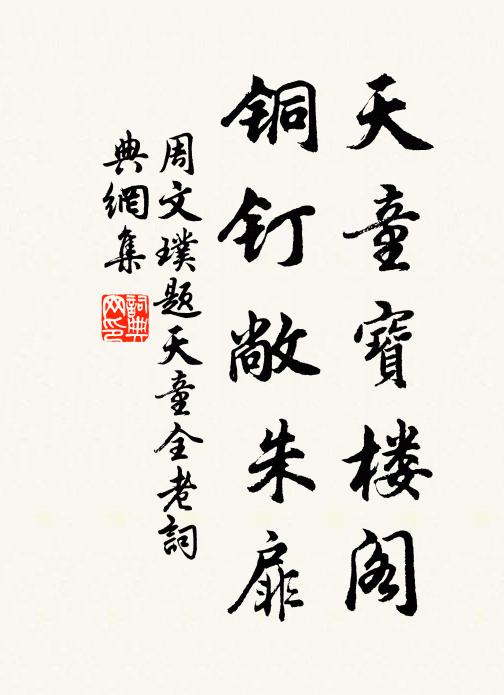 天童寶楼阁
铜钉敞朱扉
周文璞题天童全老詞
典網集
詞典网印